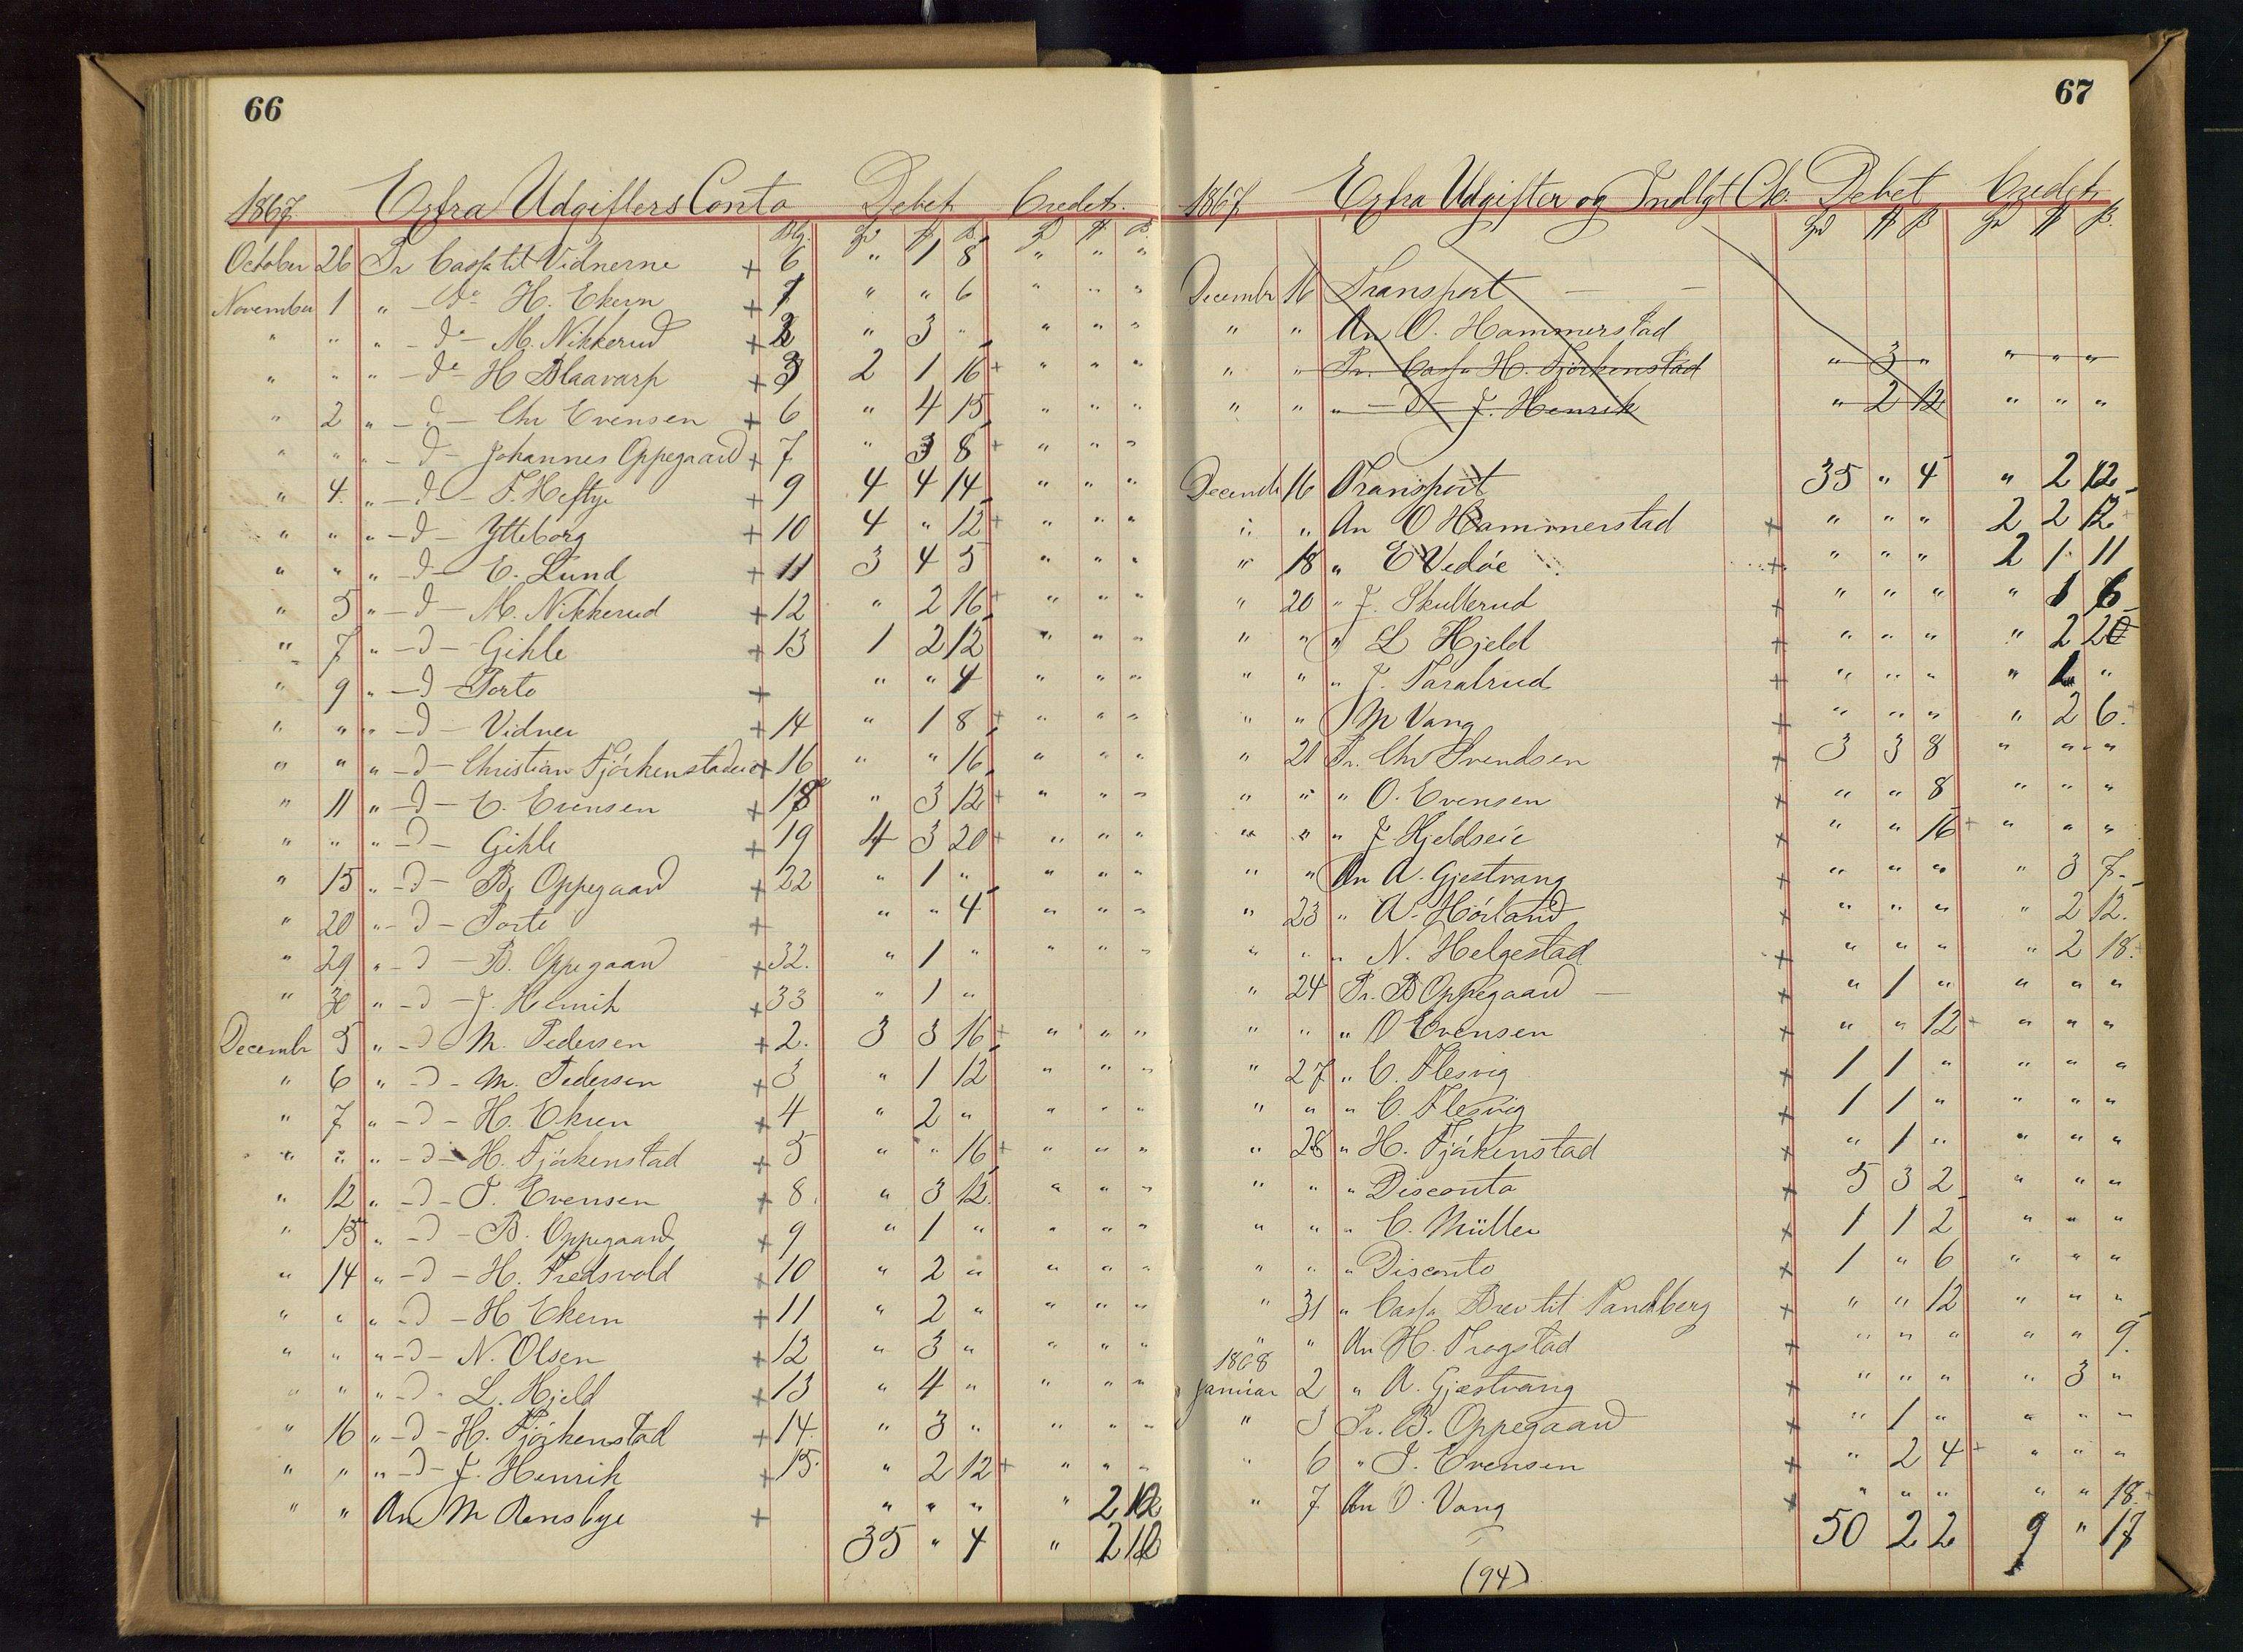 66
1867. Extra Udgifters Conto Debet Credet.
Blg.
October 26 Pr Cassa til Vidnerne + 6 " 1 8 " " "
November 1 " - do H. Ekern + 1 " " 6 " " "
" " " - d - M. Nikkerud + 2 " 3 " " " "
" " " - do - H Blaavarp + 3 2 1 16 + " " "
" 2 " - d - Chr Evensen + 6 " 4 15 " " "
" " " - d - Johannes Oppegaard + 7 " 3 8 + " " "
" 4. " - d - T. Heftye + 9 4 4 14 " " "
" " " - d - Ytteborg + 10 4 " 12 + " " "
" " " - d - E. Lund + 11 3 4 5 " " "
" 5 " - d - M. Nikkerud + 12 " 2 16 + " " "
" 7 " - d - Gihle + 13 1 2 12 " " "
" 9 " - d - Porto + " " 4 " " "
" " " - d - Vidner + 14 " 1 8 + " " "
" " " - d - Christian Fjörkenstadeie + 16 " " 16 " " "
" 11 " - d - C. Evensen + 18 " 3 12 + " " "
" " " - d - Gihle + 19 4 3 20 + " " "
" 15 " - d - B. Oppegaard + 22 " 1 " " " "
" 20 " - d - Porto + " " 4 " " "
" 29 " - d - B. Oppegaard + 32. " 1 " " " "
" 30 " - d - J. Henrik + 33 " 1 "
Decembr 5 " - d - M. Pedersen + 2. 3 3 16 + " " "
" 6 " - d - M. Pedersen + 3 " 1 12 " " "
" 7 " - d - H. Ekern + 4 " 2 " " " "
" " " - d - H. Fjörkenstad + 5 " " 16 + " " "
" 12 " - d - T. Evensen + 8. " 3 12. " " "
" 13 " - d - B. Oppegaard + 9 " 1 " " " "
" 14 " - d - H. Fredsvold + 10 " 2 " " " "
" " " - d - H Ekern + 11 " 2 " " " "
" " " - d - N. Olsen + 12 " 3 " " " "
" " " - d - L. Hjeld + 13 " 4 " " " "
" 16 " - d - H. Fjörkenstad + 14. " 3 " " " "
" " " - d - J. Henrik + 15. " 2 12 + " " "
" " An M Rensbye + " " " " 2 12
35 " 4 " 2 12
67
1867 Extra Udgifter og Indtgt Cto. Debet Credet
Decembr 16 Transport - -
" " An O. Hammerstad
" " Pr. Cassa H. Fjörkenstad " 3 " " " "
" " " - d - J. Henrik " 2 12 " " "
Decemb 16 Transport 35 " 4 " 2 12
" " An O Hammerstad + " " " 2 2 12
" 18 " E Vedöe + " " " 2 1 11
" 20 " J. Skullerud + " " " " 1 6
" " " L Hjeld + " " " " 2 20
" " " J. Taralrud + " " " " 1 "
" " " M Vang + " " " " 2 6.
" 21 Pr. Chr Svendsen + 3 3 8 " " "
" " " O. Evensen + " " 8 " " "
" " " J Hjeldseie + " " 16 + " " "
" " An A. Gjestvang + " " " " 3 7-
" 23 " A. Hörland + " " " " 2 12.
" " " N. Helgestad + " " " " 2 18.
" 24 Pr. B Oppegaard - + " 1 " " " "
" " " O Evensen + " " 12 + " " "
" 27 " C. Flesvig + 1 1 " " " "
" " " C. Flesvig + 1 1 " " " "
" 28 " H. Fjörkenstad + " 1 " " " "
" " " Disconto + 5 3 2 " " "
" " " C. Müller + 1 1 2 " " "
" " " Disconto + 1 " 6 " " "
" 31 " Cassa Brev til Sandberg + " " 12 " " "
" " An H. Frogstad + " " " " " 9.
1868
Januar 2 " A. Gjæstvang + " " " " 3 "
" 3 Pr. B. Oppegaard + " 1 " " " "
" 6 " T. Evensen + " 2 4 + " " "
" 7 An O. Vang + " " " " " 18.
50 2 2 9 " 17
(94)